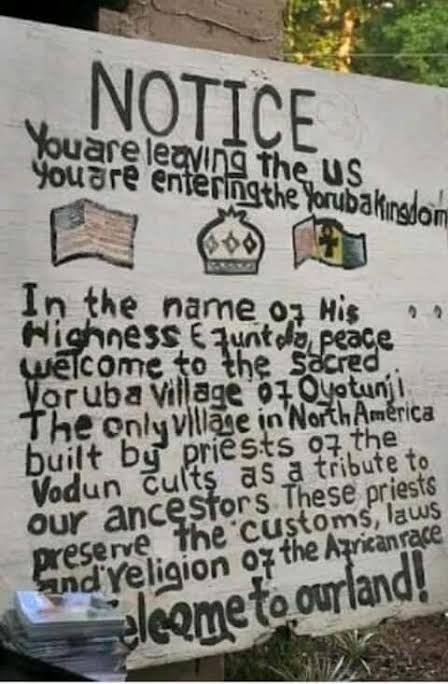 NOTICE
You are leaving the US
You are entering the Yoruba Kingdom
In the name of His
Highness Efuntola, peace
welcome to the Sacred
Yoruba Village of Oyotunji.
The only village in North America
built by priests of the
Vodun cults as a tribute to
our ancestors. These priests
preserve the customs, laws
and religion of the African race
Welcome to our land!